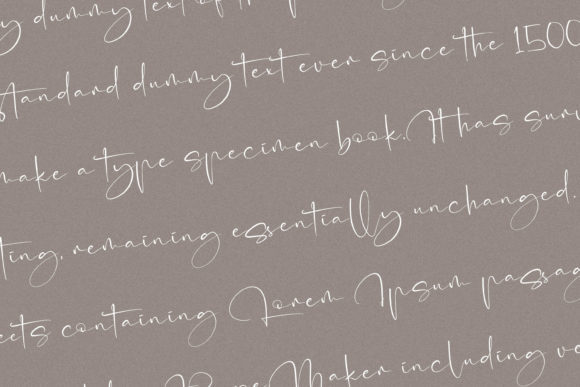 y dummy text of the p
standard dummy text ever since the 1500
make a type specimen book. It has surv
ting, remaining essentially unchanged.
eets containing Lorem Ipsum passag
PageMaker including ve